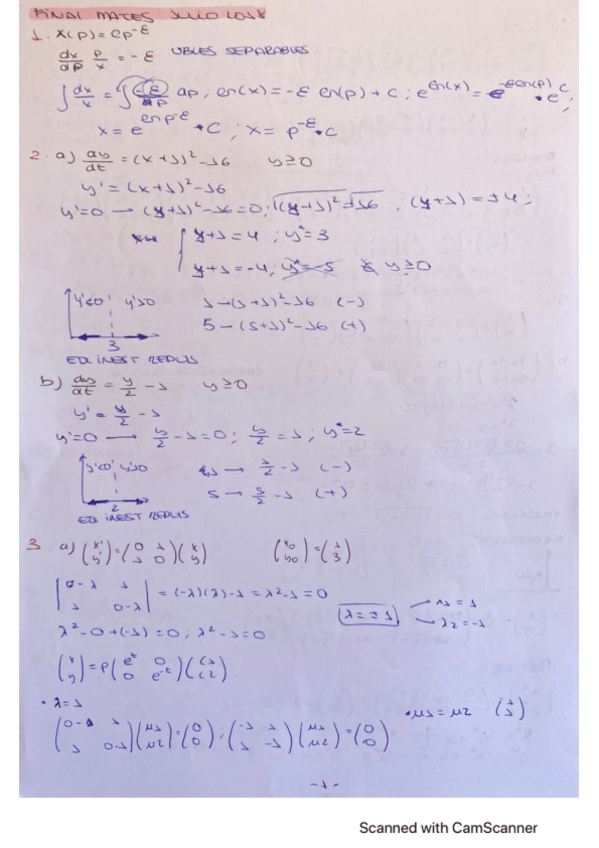 FINAL MATES JULIO 2018
1. X(p) = Cp^-ε
dx/dp p/x = -ε VBLES SEPARABLES
∫ dx/x = ∫ -ε/p dp ; en(x) = -ε en(p) + C ; e^en(x) = e^-εen(p) · e^C ;
x = e^en p^-ε + C ; x = p^-ε · C
2. a) dy/dt = (y+1)² - 16 y ≥ 0
y' = (y+1)² - 16
y' = 0 → (y+1)² - 16 = 0 ; √(y+1)² = √16 ; (y+1) = ±4 ;
y+1 = 4 ; y* = 3
y+1 = -4 ; y* = -5 y ≥ 0
y'<0 y'>0 1 → (1+1)² - 16 (-)
3 5 → (5+1)² - 16 (+)
EQ INEST REPULS
b) dy/dt = y/2 - 1 y ≥ 0
y' = y/2 - 1
y' = 0 → y/2 - 1 = 0 ; y/2 = 1 ; y* = 2
y'<0 y'>0 1 → 1/2 - 1 (-)
2 5 → 5/2 - 1 (+)
EQ INEST REPULS
3. a) (x' y') = (0 1 1 0)(x y) (x0 y0) = (1 3)
|0-λ 1 1 0-λ| = (-λ)(λ) - 1 = λ² - 1 = 0
λ² - 0 + (-1) = 0 ; λ² - 1 = 0 λ = ±1 λ1 = 1 λ2 = -1
(x y) = P (e^t 0 0 e^-t)(C1 C2)
• λ = 1
(0-1 1 1 0-1)(μ1 μ2) = (0 0) ; (-1 1 1 -1)(μ1 μ2) = (0 0) • μ1 = μ2 (1 1)
-1-
Scanned with CamScanner